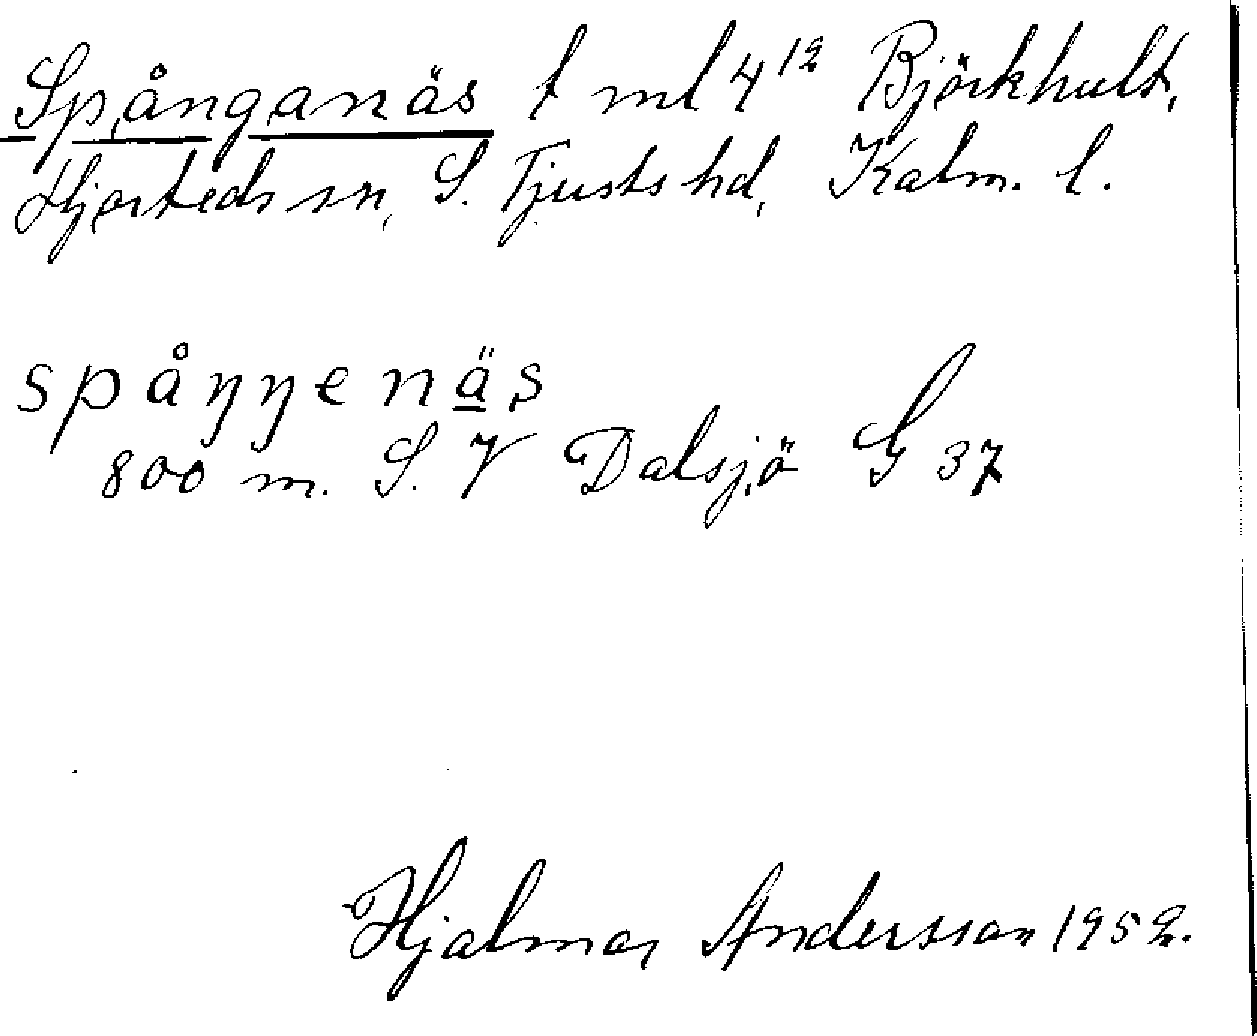 Spånganäs t ml 4¹² Björkhult,
Hjorteds sn, S. Tjusts hd, Kalm. l.
spåŋŋenäs
800 m. S. V Dalsjö G 37
Hjalmar Andersson 1952.